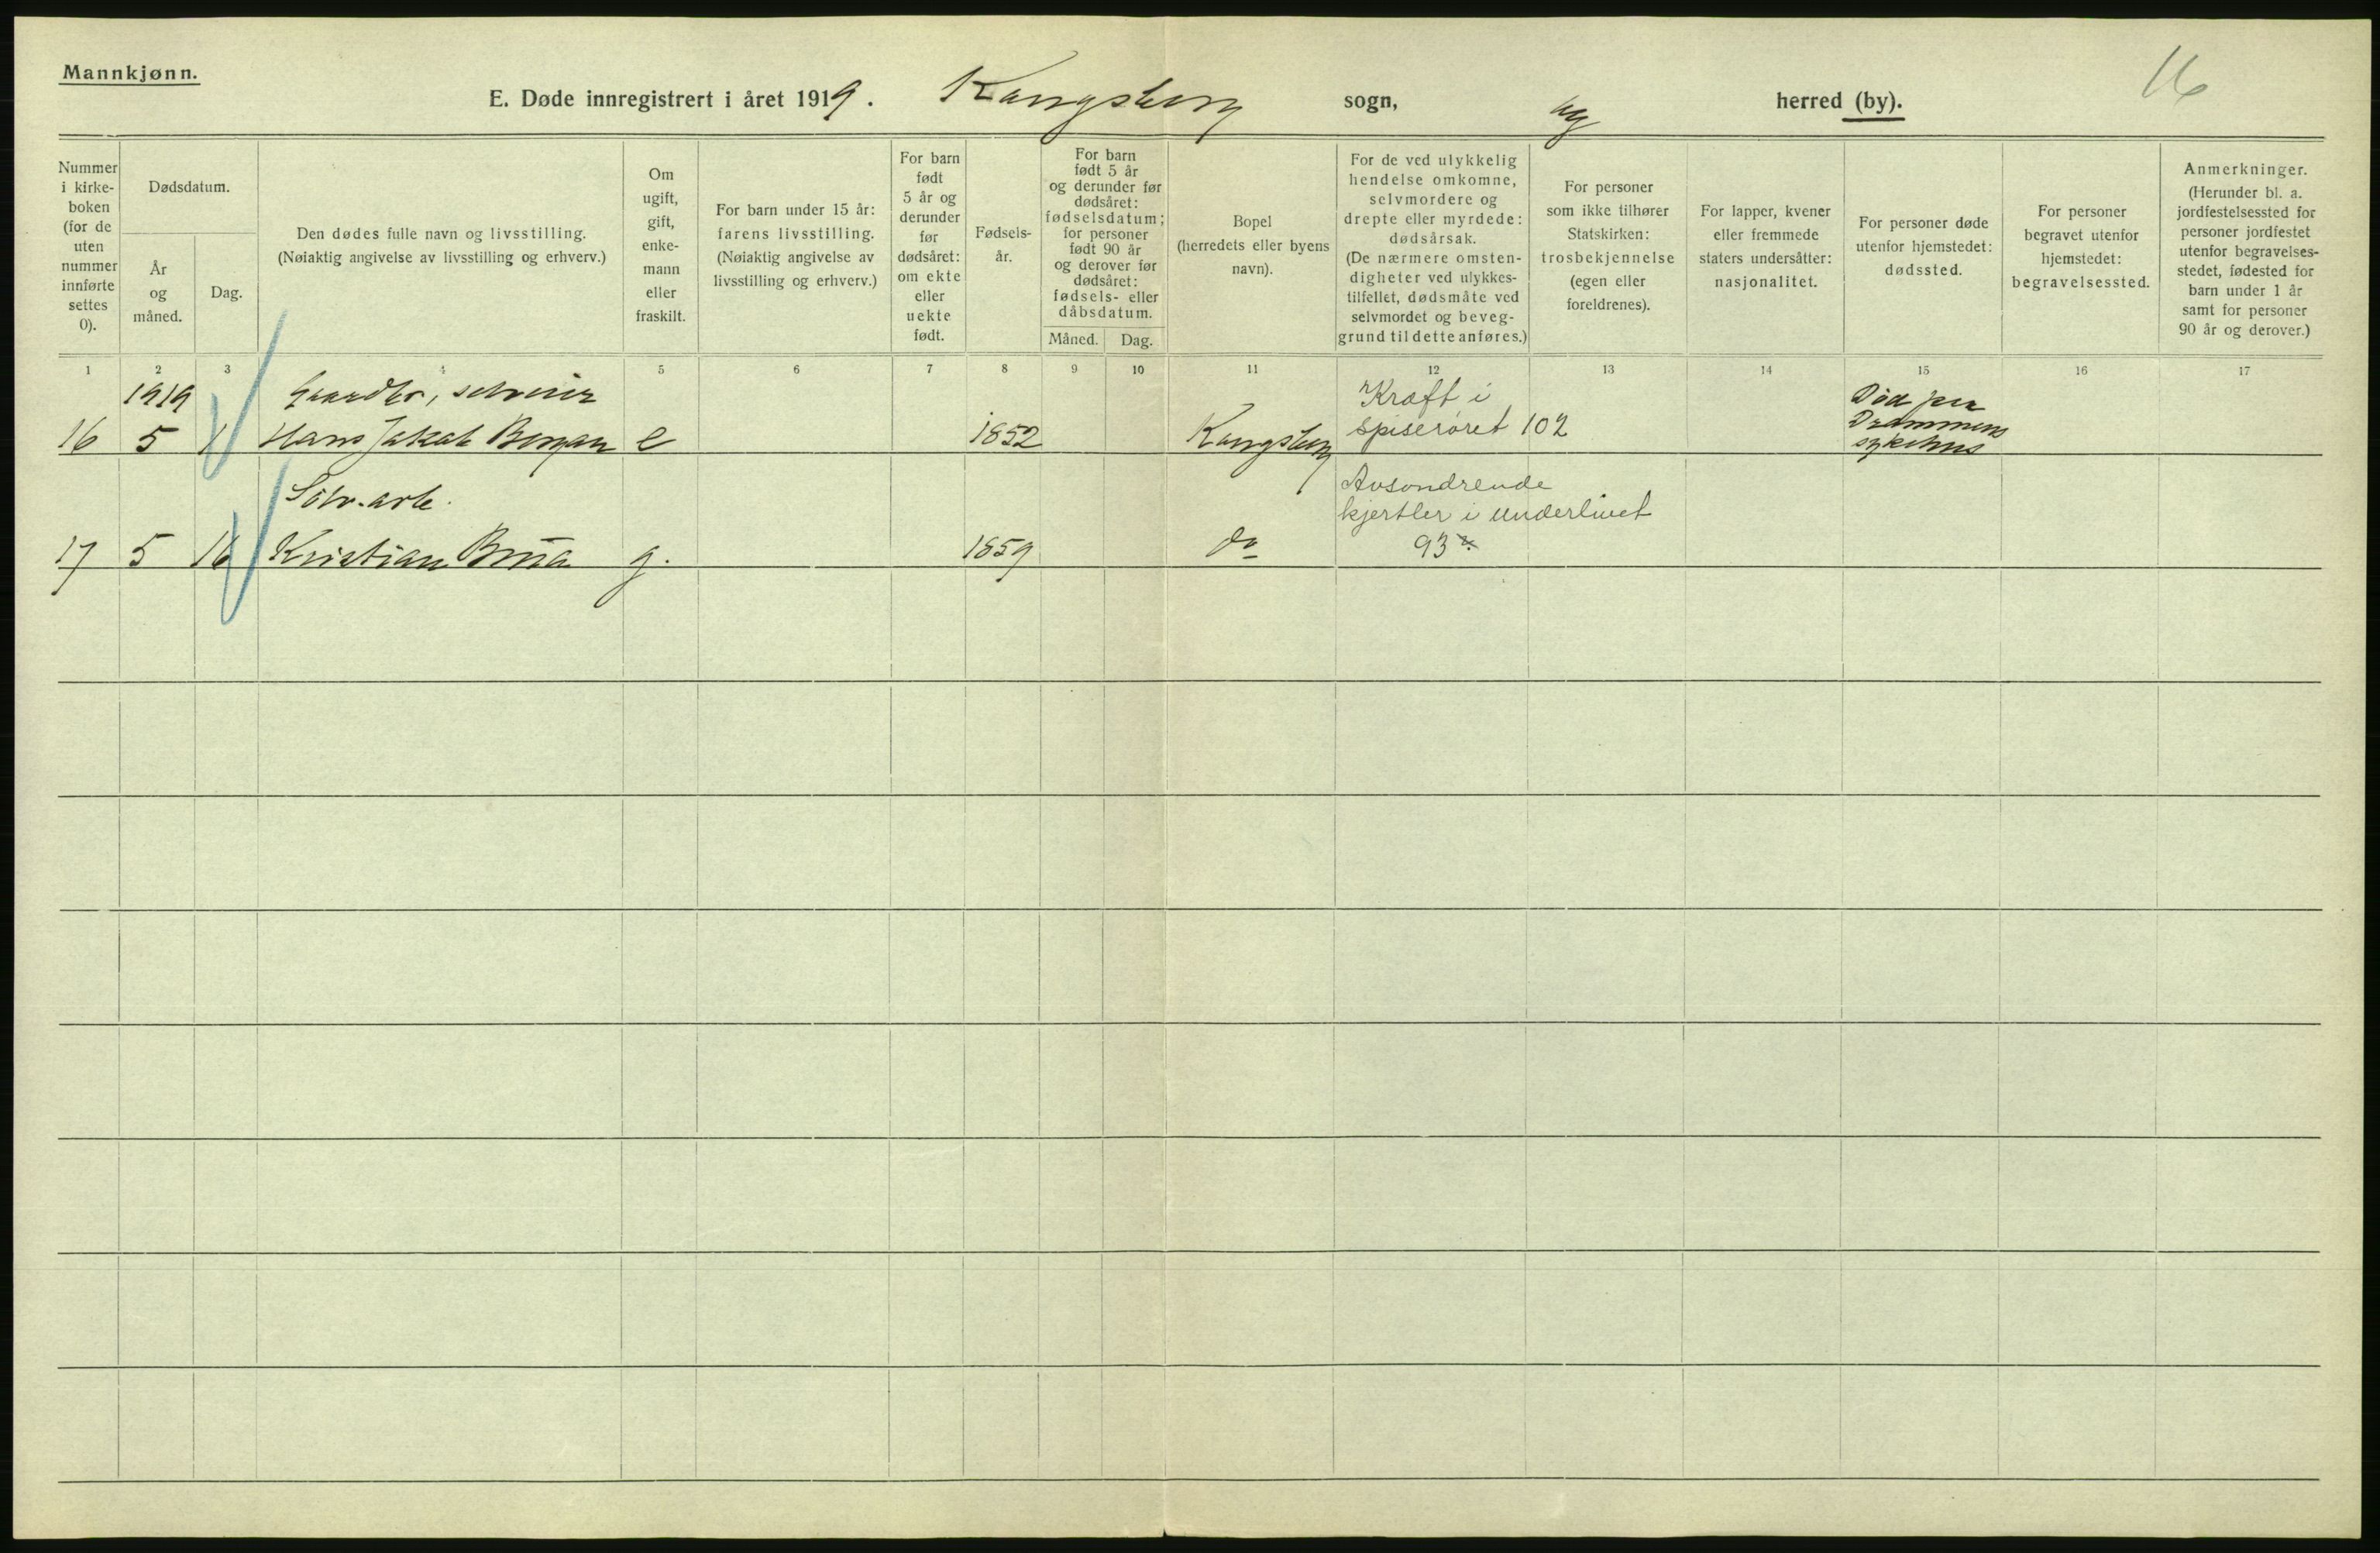 Mannkjønn.
16
E. Døde innregistrert i året 1919. Kongsberg sogn, by herred (by).
Nummer
i kirke-
boken
(for de
uten
nummer
innførte
settes
0).
Dødsdatum.
År
og
måned.
Dag.
Den dødes fulle navn og livsstilling.
(Nøiaktig angivelse av livsstilling og erhverv.)
Om
ugift,
gift,
enke-
mann
eller
fraskilt.
For barn under 15 år:
farens livsstilling.
(Nøiaktig angivelse av
livsstilling og erhverv.)
For barn
født
5 år og
derunder
før
dødsåret:
om ekte
eller
uekte
født.
Fødsels-
år.
For barn
født 5 år
og derunder før
dødsåret:
fødselsdatum;
for personer
født 90 år
og derover før
dødsåret:
fødsels- eller
dåbsdatum.
Måned.
Dag.
Bopel
(herredets eller byens
navn).
For de ved ulykkelig
hendelse omkomne,
selvmordere og
drepte eller myrdede:
dødsårsak.
(De nærmere omsten-
digheter ved ulykkes-
tilfellet, dødsmåte ved
selvmordet og beveg-
grund til dette anføres.)
For personer
som ikke tilhører
Statskirken:
trosbekjennelse
(egen eller
foreldrenes).
For lapper, kvener
eller fremmede
staters undersåtter:
nasjonalitet.
For personer døde
utenfor hjemstedet:
dødssted.
For personer
begravet utenfor
hjemstedet:
begravelsessted.
Anmerkninger.
(Herunder bl. a.
jordfestelsessted for
personer jordfestet
utenfor begravelses-
stedet, fødested for
barn under 1 år
samt for personer
90 år og derover.)
1 2 3 4 5 6 7 8 9 10 11 12 13 14 15 16 17
1919
16 5 1 Hans Jakob e 1852 Kongsberg
Kræft i
spiserøret 102
Død paa
Drammens
sykehus
Sølv.arb.
17 5 16 Kristian Brua g. 1859 do
Avsondrende
kjertler i underlivet
93